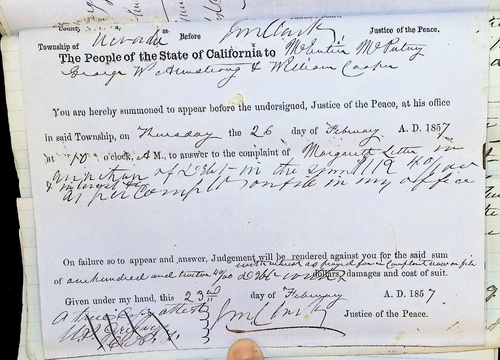 County,
Township of Nevada Before J M Clark, Justice of the Peace.
The People of the State of California to
George W Armstrong & William Cooper
You are hereby summoned to appear before the undersigned, Justice of the Peace, at his office
in said Township, on Thursday the 26 day of February A. D. 1857
at 10 o'clock, A M., to answer to the complaint of Margaret Letter in
an action of Debt in the sum 119 40/100
& interest &c as per complt on file in my office
On failure so to appear and answer, Judgement will be rendered against you for the said sum
with interest as prayed for in Complaint now on file
of one hundred and 40/100 Debt dollars, damages and cost of suit.
Given under my hand, this 23rd day of February A. D. 1857
J M Clark Justice of the Peace.
A true Copy attest